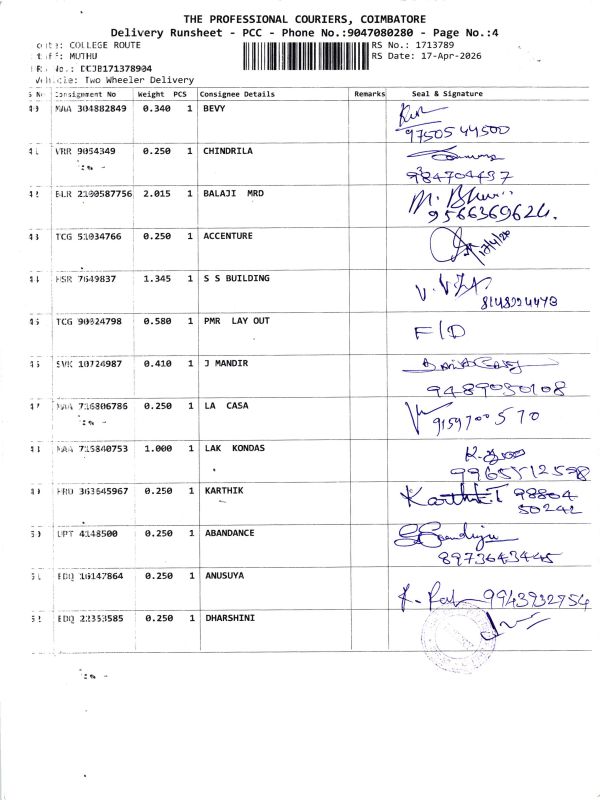 THE PROFESSIONAL COURIERS, COIMBATORE
Delivery Runsheet - PCC - Phone No.:9047080280 - Page No.:4
COLLEGE ROUTE
RS No.: 1713789
MUTHU
RS Date: 17-Apr-2026
No.: DCJB171378904
Two Wheeler Delivery
Consignment No Weight PCS Consignee Details Remarks Seal & Signature
MAA 304882849 0.340 1 BEVY
97505 44500
41 VRR 9054349 0.250 1 CHINDRILA
42 BLR 2190587756 2.015 1 BALAJI MRD M.
9566369624.
43 TCG 51034766 0.250 1 ACCENTURE
44 HSR 7649837 1.345 1 S S BUILDING
45 TCG 90324798 0.580 1 PMR LAY OUT F/D
SVK 10724987 0.410 1 J MANDIR
9489050108
47 MAA 716806786 0.250 1 LA CASA 9159700570
MAA 715840753 1.000 1 LAK KONDAS
363645967 0.250 1 KARTHIK Karthik 98804
50242
4148500 0.250 1 ABANDANCE
8973643445
EDQ 16147864 0.250 1 ANUSUYA
9943932954
EDQ 22353585 0.250 1 DHARSHINI